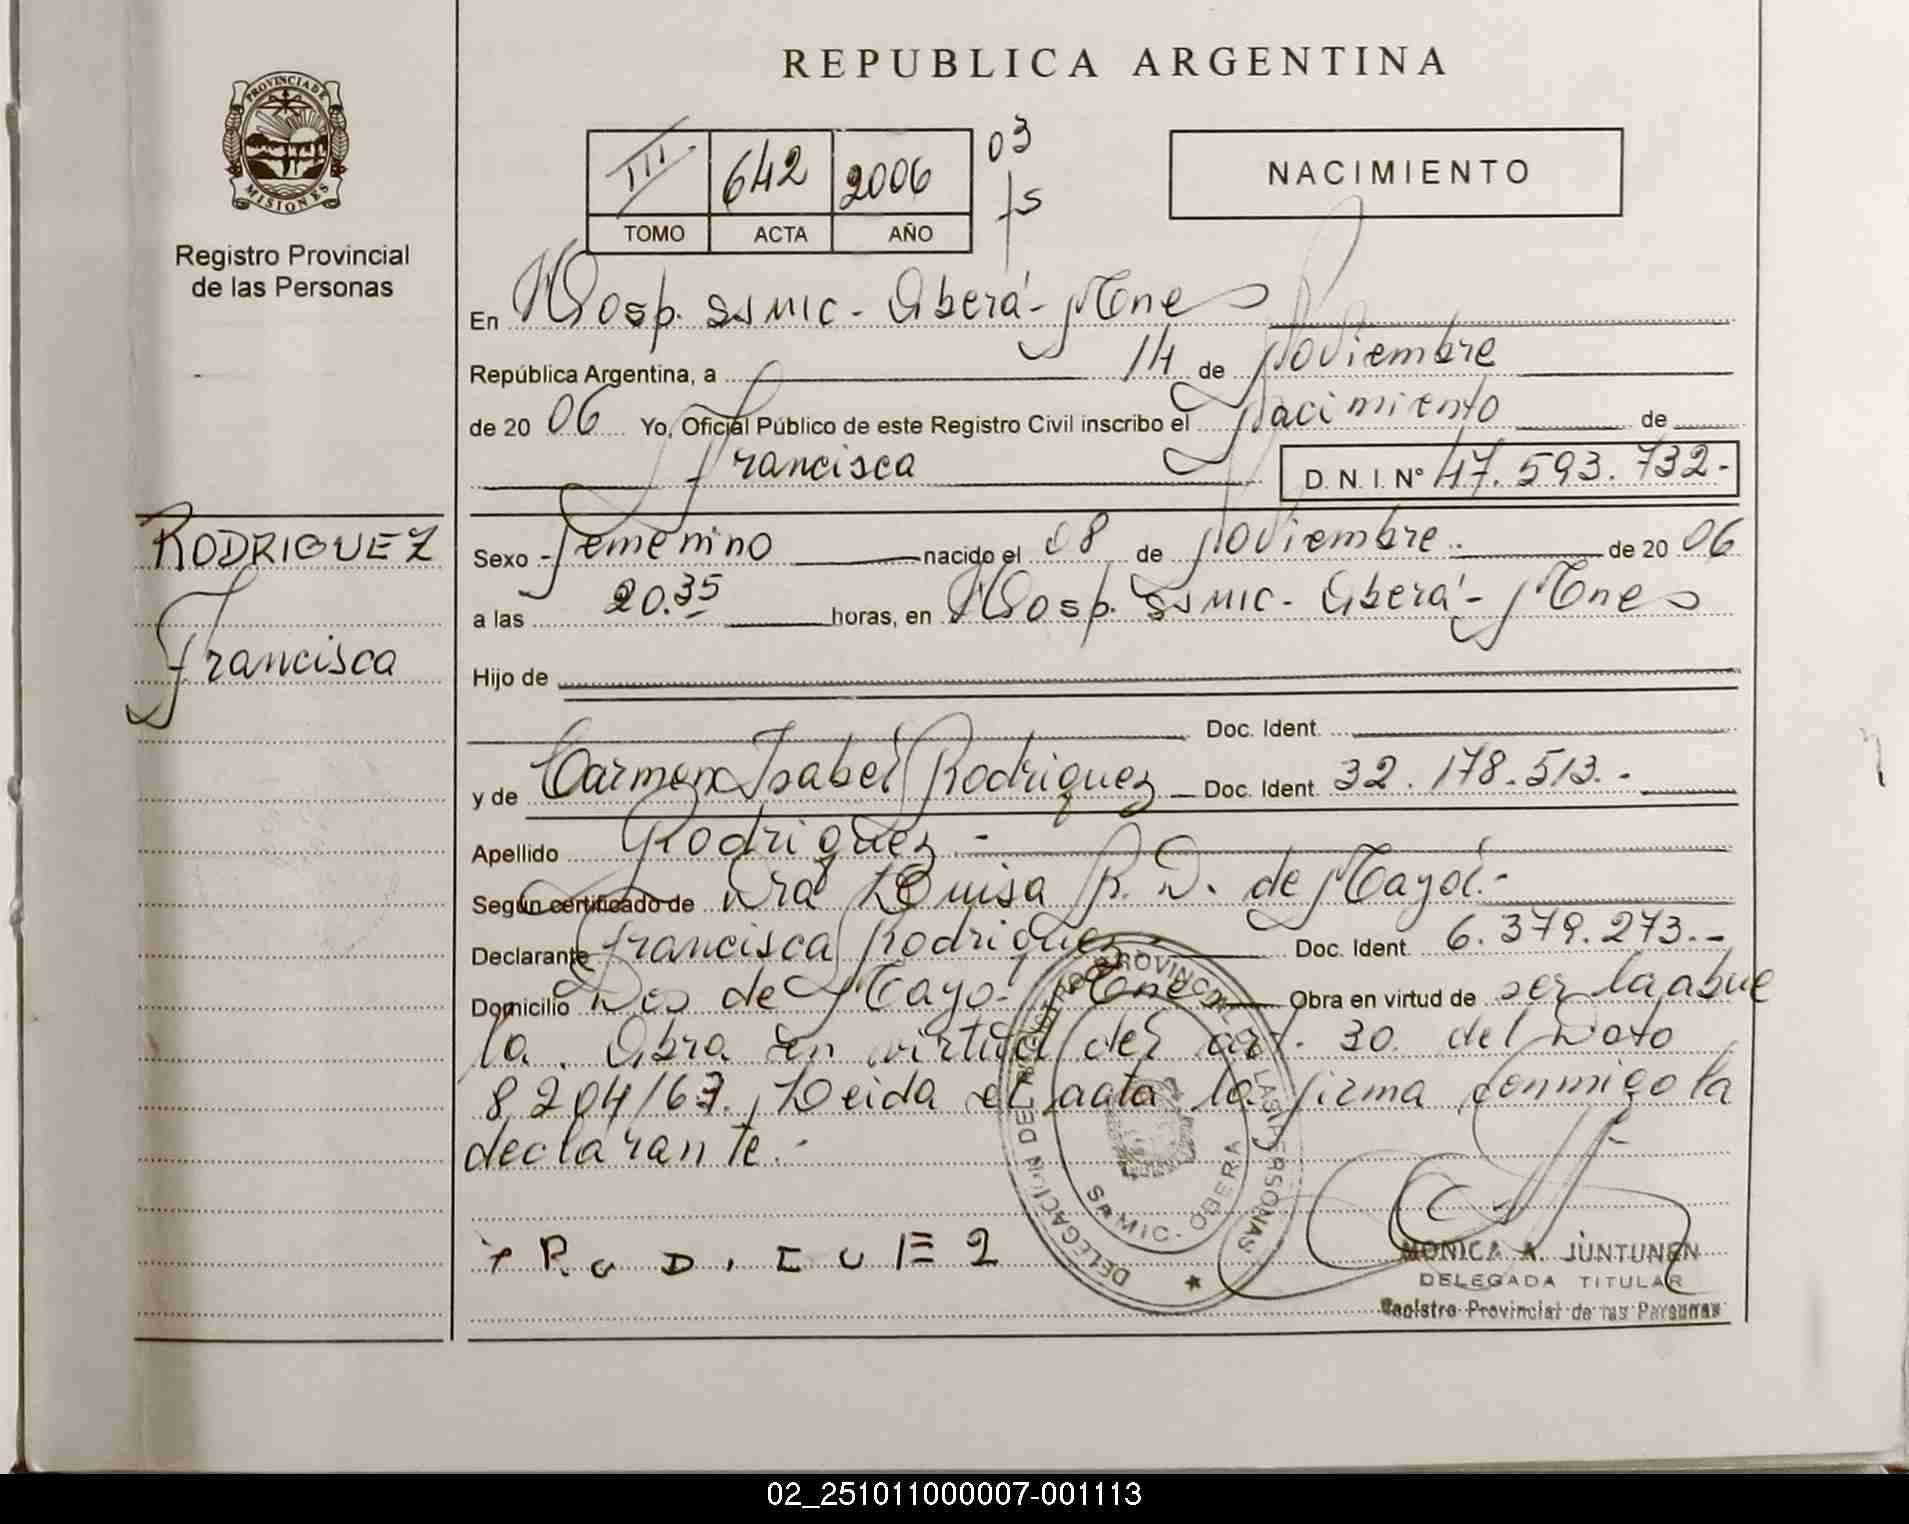 REPUBLICA ARGENTINA
PROVINCIA DE
MISIONES
Registro Provincial
de las Personas
III 642 2006
TOMO ACTA AÑO
03
fs
NACIMIENTO
En Hosp. SAMIC - Oberá - Mnes
República Argentina, a 14 de Noviembre
de 2006 Yo, Oficial Público de este Registro Civil inscribo el Nacimiento de
Francisca D. N. I. Nº 47.593.732.-
RODRIGUEZ
Francisca
Sexo Femenino nacido el 08 de Noviembre de 2006
a las 20.35 horas, en Hosp. SAMIC - Oberá - Mnes
Hijo de
Doc. Ident.
y de Carmen Isabel Rodriguez Doc. Ident. 32.178.513.-
Apellido Rodriguez -
Según certificado de Dra Luisa R. D. de
Declarante Francisca Rodriguez Doc. Ident. 6.379.273.-
Domicilio Dos de Mayo - Mnes Obra en virtud de ser la abue
la. Obra en virtud del art. 30 del Dcto
8204/63. Leida el acta la firma conmigo la
declarante.-
DELEGACION DEL REGISTRO PROVINCIAL DE LAS PERSONAS
SAMIC. OBERA
MONICA A. JUNTUNEN
DELEGADA TITULAR
Registro Provincial de las Personas
02_251011000007-001113